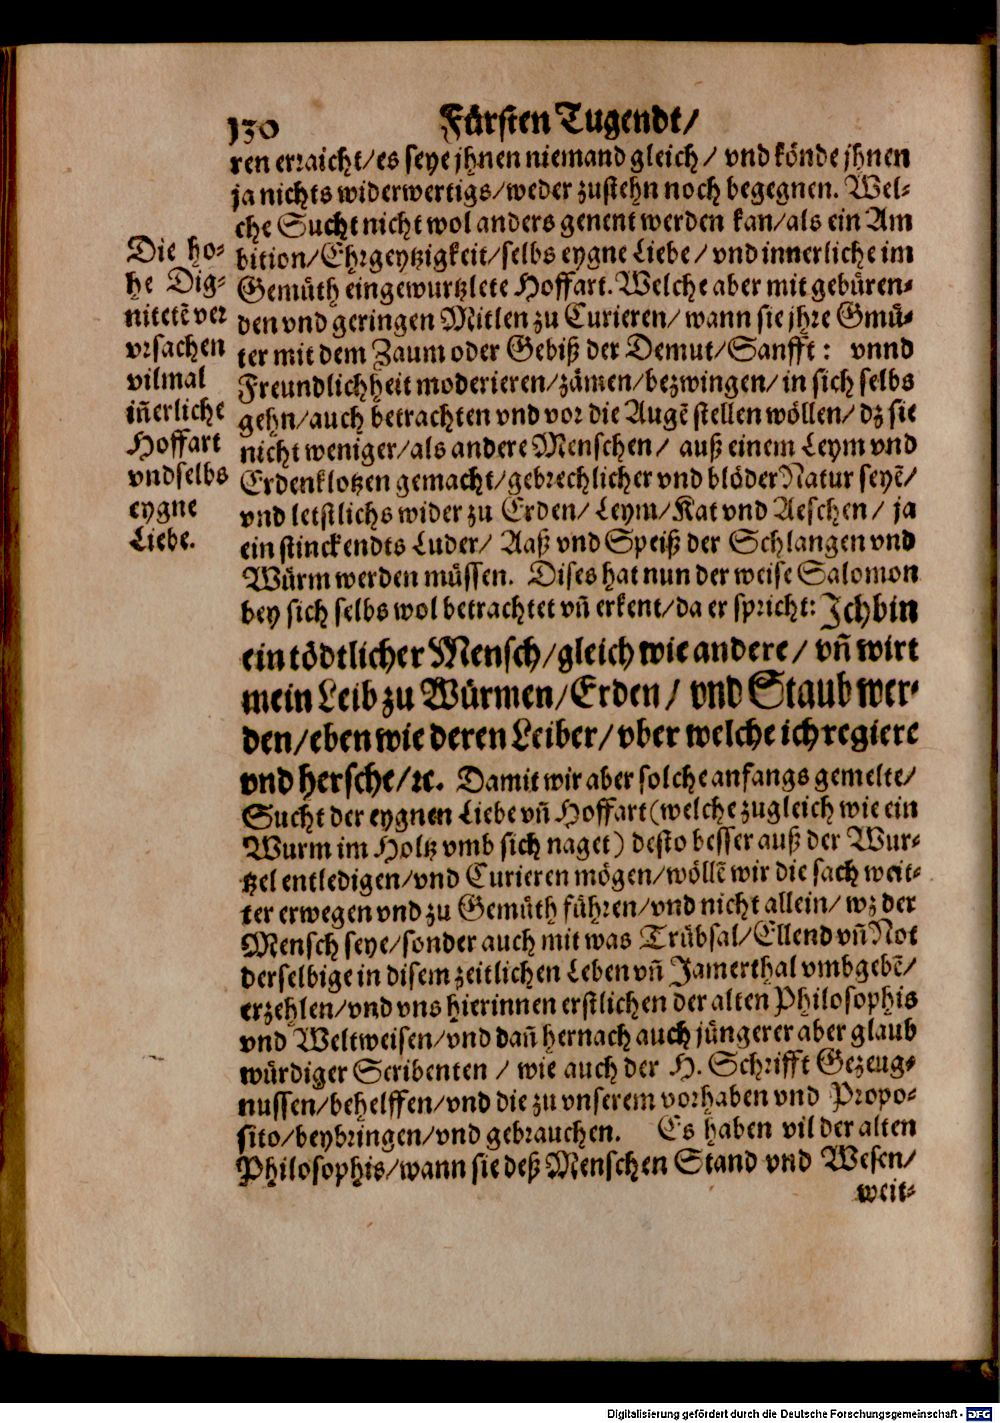 130
Fürsten Tugendt/
ren erraicht/es seye jhnen niemand gleich/ vnd könde jhnen
ja nichts widerwertigs/weder zustehn noch begegnen. Wel-
che Sucht nicht wol anders genent werden kan/als ein Am
bition/Ehrgeytzigkeit/selbs eygne Liebe/ vnd innerliche im
Gemüth eingewurtzlete Hoffart. Welche aber mit gebüren-
den vnd geringen Mitlen zu Curieren/ wann sie jhre Gmü-
ter mit dem Zaum oder Gebiß der Demut/Sanfft: vnnd
Freundlichheit moderieren/zämen/bezwingen/ in sich selbs
gehn/auch betrachten vnd vor die Augẽ stellen wöllen/ dz sie
nicht weniger/als andere Menschen/ auß einem Leym vnd
Erdenklotzen gemacht/gebrechlicher vnd blöder Natur seyẽ/
vnd letstlichs wider zu Erden/ Leym/ Kat vnd Aeschen/ ja
ein stinckendts Luder/ Aaß vnd Speiß der Schlangen vnd
Würm werden müssen. Dises hat nun der weise Salomon
bey sich selbs wol betrachtet vñ erkent/da er spricht: Ich bin
ein tödtlicher Mensch/gleich wie andere/ vñ wirt
mein Leib zu Würmen/Erden/ vnd Staub wer-
den/eben wie deren Leiber/vber welche ich regiere
vnd hersche/ꝛc. Damit wir aber solche anfangs gemelte/
Sucht der eygnen Liebe vñ Hoffart (welche zugleich wie ein
Wurm im Holtz vmb sich naget) desto besser auß der Wur-
tzel entledigen/vnd Curieren mögen/wöllẽ wir die sach weit-
ter erwegen vnd zu Gemüth führen/vnd nicht allein/ wz der
Mensch seye/sonder auch mit was Trübsal/Ellend vñ Not
derselbige in disem zeitlichen Leben vñ Jamerthal vmbgebẽ/
erzehlen/vnd vns hierinnen erstlichen der alten Philosophis
vnd Weltweisen/vnd dañ hernach auch jüngerer aber glaub
würdiger Scribenten / wie auch der H. Schrifft Gezeug-
nussen/behelffen/vnd die zu vnserem vorhaben vnd Propo-
sito/beybringen/vnd gebrauchen. Es haben vil der alten
Philosophis/wann sie deß Menschen Stand vnd Wesen/
weit-
Die ho-
he Dig-
nitetẽ ver
vrsachen
vilmal
iñerliche
Hoffart
vnd selbs
eygne
Liebe.
Digitalisierung gefördert durch die Deutsche Forschungsgemeinschaft - DFG